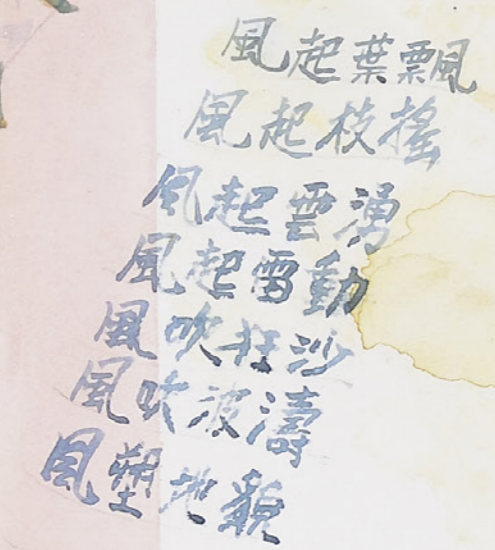 風起葉飄
風起枝搖
風起雲湧
風起雷動
風吹狂沙
風吹波濤
風塑地貌